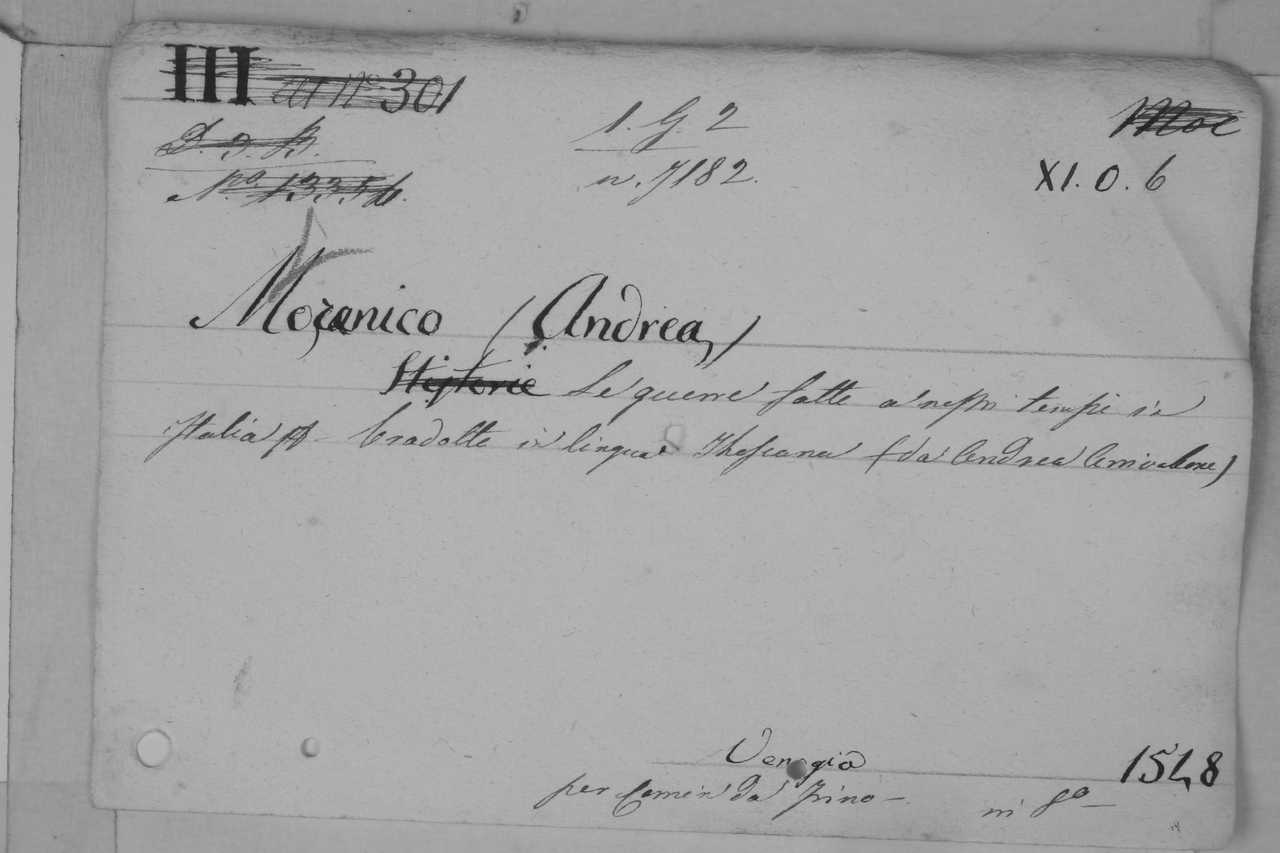 III al nº 301
D. 3. B.
Nº. 13356.
1. G. 2
n. 7182.
Moc
XI. 0. 6
Mozenico (Andrea)
Historie Le guerre fatte a' nostri tempi in
Italia tradotte in lingua Thoscana (da Andrea Arrivabene)
Venegia 1548
per Comin da Trino - in 8º -